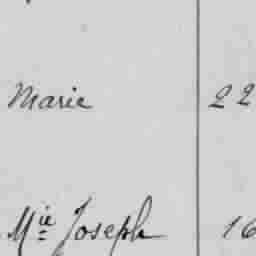 Marie 22
Mie Joseph 16